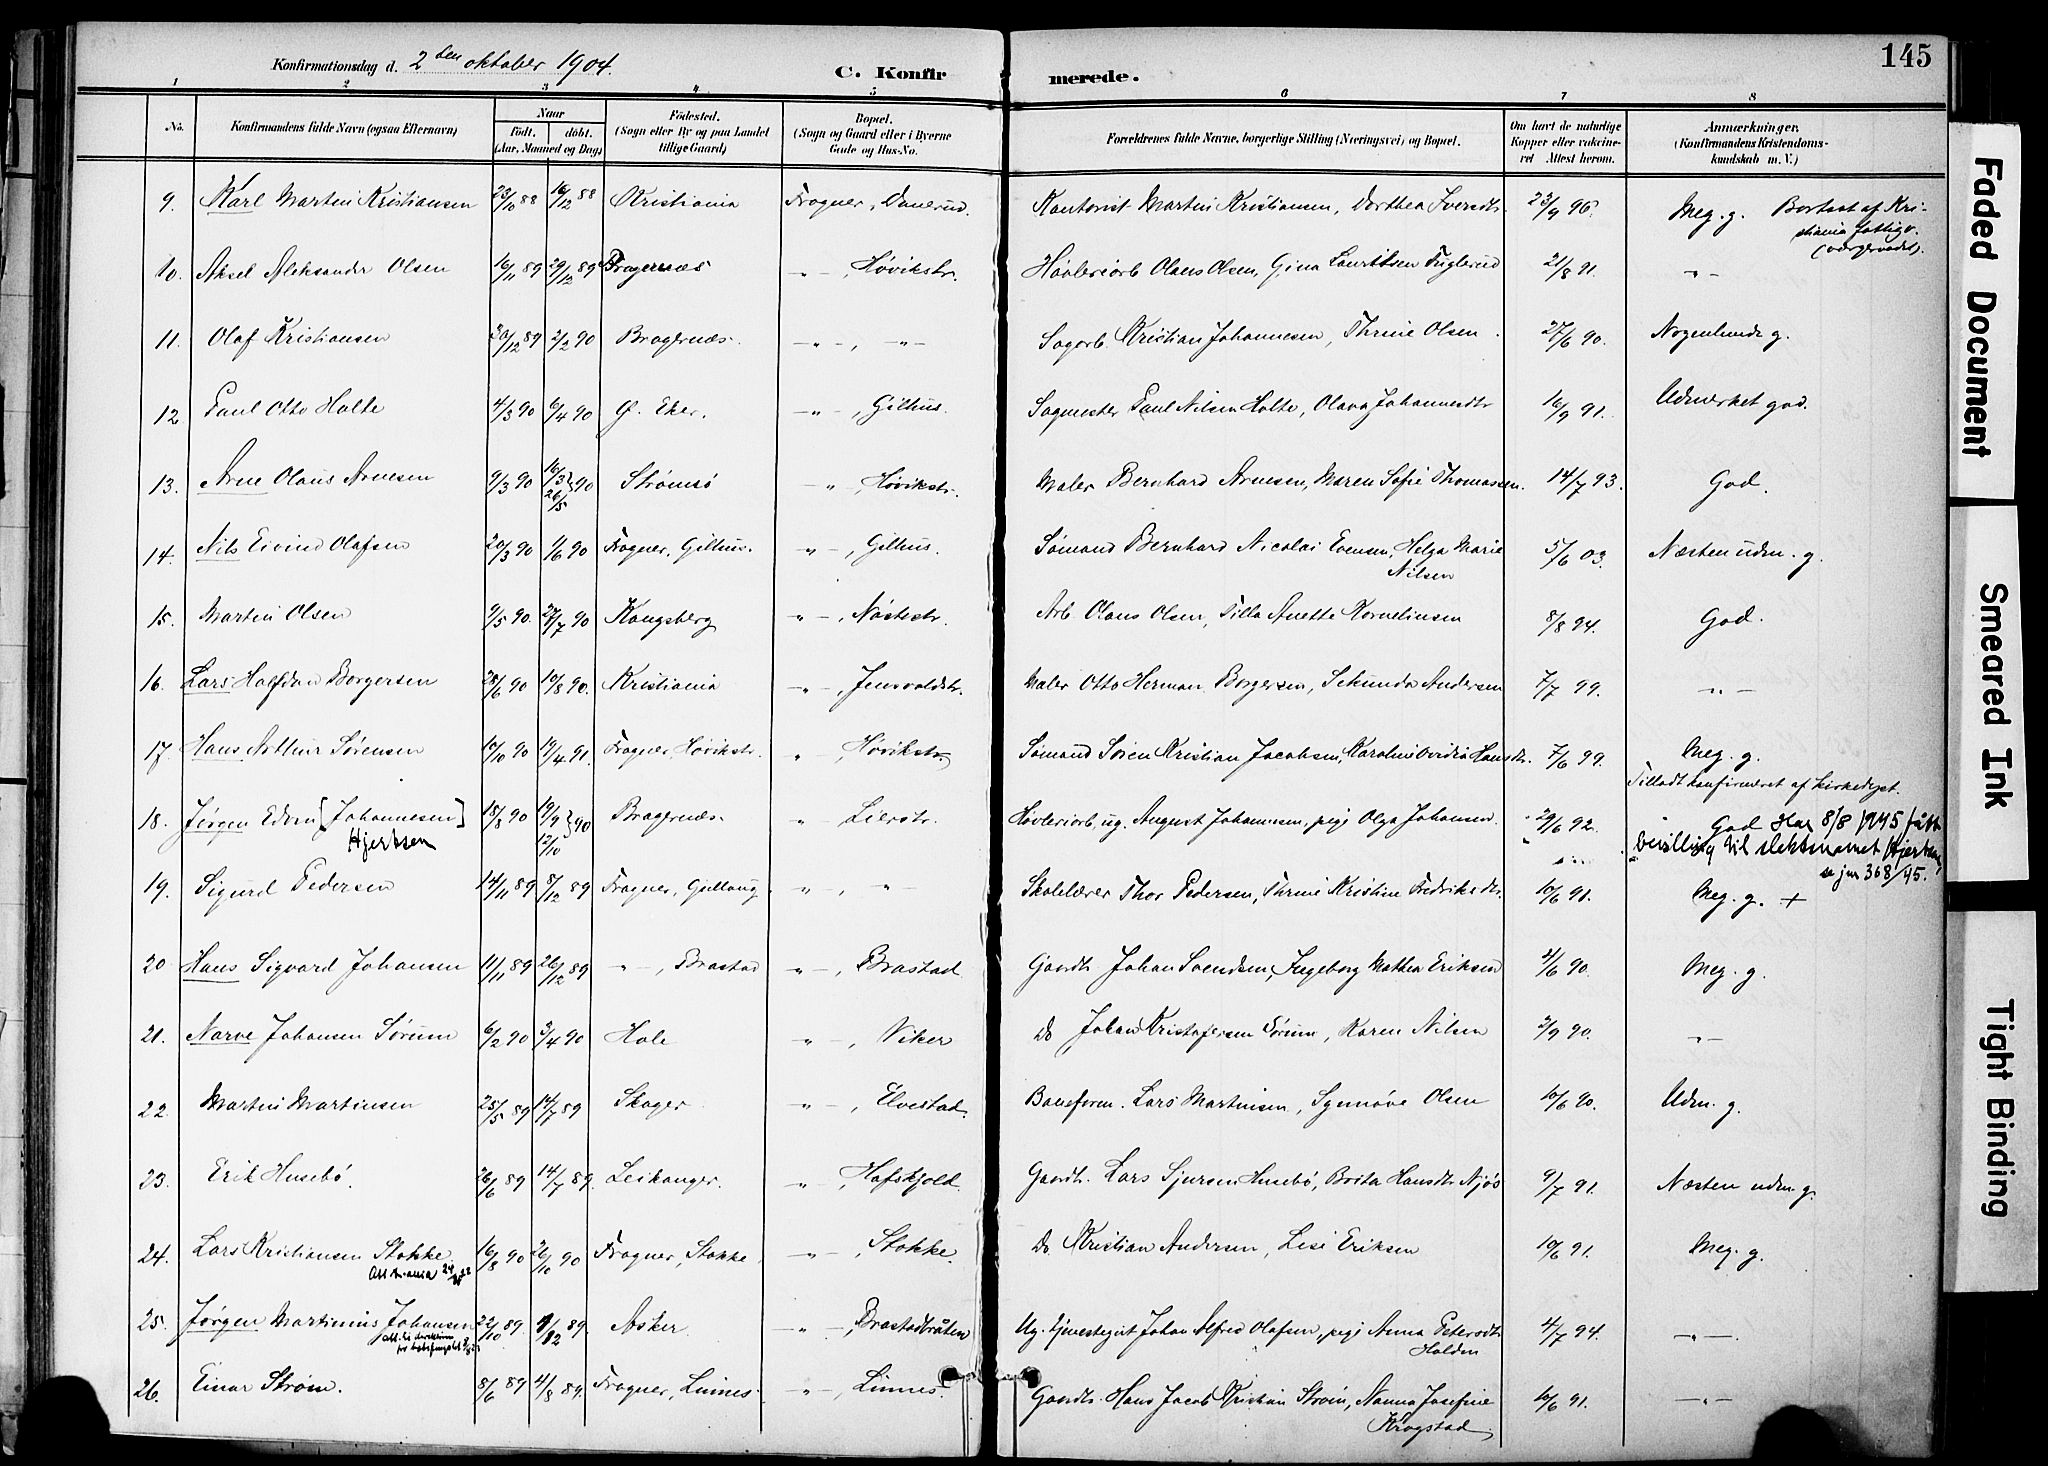 Konfirmationsdag d. 2den oktober 1904.
C. Konfirmerede.
145
1 2 3 4 5 6 7 8
No.
Konfirmandens fulde Navn (ogsaa Efternavn)
Naar
födt. döbt.
(Aar, Maaned og Dag)
Födested.
(Sogn eller By og paa Landet
tillige Gaard)
Bopæl.
(Sogn og Gaard eller i Byerne
Gade og Hus-No.
Forældrenes fulde Navne, borgerlige Stilling (Næringsvei) og Bopæl.
Om havt de naturlige
Kopper eller vaccine-
ret Attest herom.
Anmærkninger.
(Konfirmandens Kristendoms-
kundskab m. V.)
9. Karl Martin Kristiansen 23/10 88 16/12 88 Kristiania Frogner, Danerud. Kantonist Martin Kristiansen, Dorthea Iversdtr. 23/9 96. Meg. g. Bortsat af Kri-
stiania fattigv.
(værgeraadet).
10. Aksel Aleksander Olsen 16/11 89 29/12 89 Bragernæs - " -, Høvikstr. Høvleriarb Olaus Olsen, Gina Lauritsen Fuglerud 21/8 91. - " -
11. Olaf Kristiansen 30/12 89 2/2 90 Bragernæs. - " -, - " - Sagarb. Kristian Johannesen, Thrine Olsen. 27/6 90. Nogenlunde g.
12 Paul Otto Holte 4/3 90 6/4 90 Ø. Eker. - " -, Gilhus. Sagmester Paul Nilsen Holte, Olava Johannesdtr 16/9 91. Udmerket god.
13. Arne Olaus Arnesen 9/3 90 16/3 26/5 } 90 Strømsö - " -, Høvikstr. Maler Bernhard Arnesen, Maren Sofie Thomassen. 14/7 93. God.
14. Nils Eivind Olafsen 20/3 90 1/6 90 Frogner, Gilhus. " -, Gilhus. Sømand Bernhard Nicolai Evensen, Helga Marie
Nilsen 5/6 03. Næsten udm. g.
15. Martin Olsen 9/5 90. 27/7 90 Kongsberg " -, Nøstestr. Arb. Olaus Olsen, Tilla Anette Korneliusen 8/8 94. God.
16. Lars Halfdan Borgersen 28/6 90 10/8 90. Kristiania " -, Jensvoldstr. Maler Otto Herman Borgersen, Sekunda Andersen 7/7 99. - " -
17. Hans Arthur Sørensen 10/10 90 19/4 91. Frogner, Høvikstr. " , Høvikstr. Sømand Søren Kristian Jacobsen, Karoline Ovidia Hansdtr. 7/6 99. Meg. g.
Tilladt konfirmeret af kirkedept.
18. Jörgen Edvin [Johannesen] 18/8 90 19/9 12/10 } 90 Bragernæs. " Lierstr. Høvleriarb, ug. August Johannesen, pige Olga Johansen. 29/6 92. God Har 8/8 1945 fått
Hjertsen
bevilling til slektsnavnet Hjertsen,
se jnr 368/45.
19. Sigurd Pedersen 14/11 89 8/12 89 Frogner, Gullaug " -, " Skolelærer Thor Pedersen, Thrine Kristine Fredriksdtr. 10/6 91. Meg. g. +
20 Hans Sigvard Johansen 11/11 89 26/12 89 - " -, Brastad " -, Brastad Gaardbr. Johan Svendsen, Ingeborg Mathea Eriksen 2/6 90. Meg. g.
21. Narve Johansen Sørum 6/2 90 3/4 90 Hole " -, Viker Do Johan Kristofersen Sørum, Karen Nilsen 3/9 90. - " -
22. Martin Martinsen 25/5 89 14/7 89 Skoger " -, Elvestad. Baneform. Lars Martinsen, Synnøve Olsen 10/6 90. Udm. g.
23. Erik Husebö. 26/6 89 14/7 89. Leikanger. " -, Hafskjold. Gaardbr. Lars Sjursen Husebö, Brita Hansdtr Njøs 9/7 91. Næsten udm. g.
24. Lars Kristiansen Stokke 16/8 90 26/10 90 Frogner, Stokke. " -, Stokke. Do Kristian Andersen, Lisi Eriksen 10/6 91. Meg. g.
25. Jørgen Martinius Johansen 22/10 89. 1/12 89. Asker - " -, Brastadbråten Ug. tjenestegut Johan Alfred Olafsen, pige Anna Petersdtr
Holden 4/7 94. - " -
26. Einar Strøm. 8/6 89 4/8 89. Frogner, Linnes. " -, Linnes. Gaardbr. Hans Jacob Kristian Strøm, Nanna Josefine
Krogstad, 10/6 91. - " -
Faded Document
Smeared Ink
Tight Binding